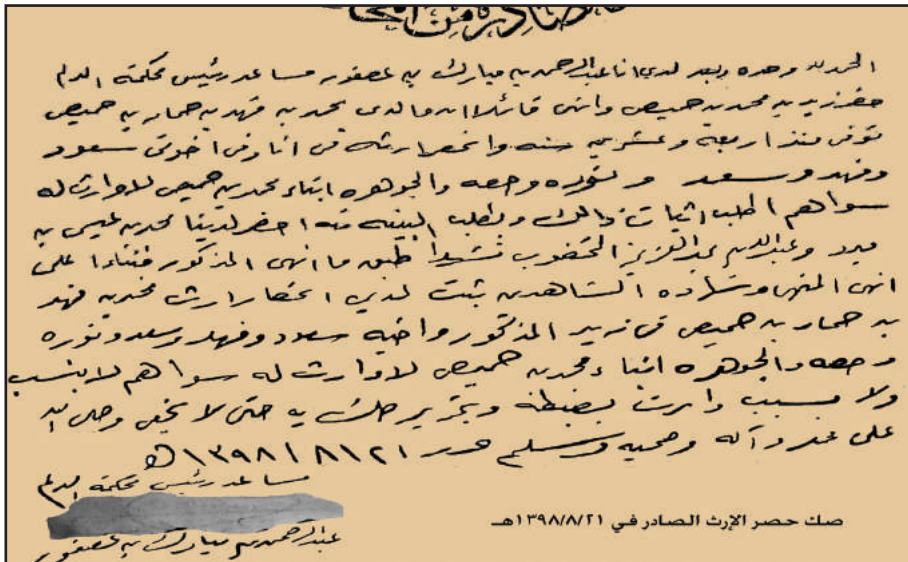 الصادرة من
الحمد لله وحده وبعد لدي انا عبدالرحمن بن مبارك بن عصفور مساعد رئيس محكمة الدلم
حضر زيد بن محمد بن حميص وانهى قائلا ان والدي محمد بن فهد بن حمار بن حميص
توفى منذ اربعه وعشرين سنه وانحصر ارثه في انا وفي اخوتي سعود
وفهد وسعد ونوره وحصه والجوهره ابناء محمد بن حميص لا وارث له
سواهم اطلب اثبات ذالك وبطلب البينه منه احضر لدينا محمد بن عيسى بن
وعبدالله بن عبدالعزيز الخضوب فشهدا طبق ما انهى المذكور فبناءا على
انهى المنهي وشهاده الشاهدين ثبت لدي انحصار ارث محمد بن فهد
بن حمار بن حميص في زيد المذكور واخيه سعود وفهد وسعد ونوره
وحصه والجوهره ابناء محمد بن حميص لا وارث له سواهم لا بنسب
ولا بسبب وامرت بضبطه وبتحرير صك به حتى لا يخفى وصلى الله
على محمد وآله وصحبه وسلم حرر ١٣٩٨/٨/٢١ه
مساعد رئيس محكمة الدلم
عبدالرحمن بن مبارك بن عصفور
صك حصر الإرث الصادر في ١٣٩٨/٨/٢١هـ